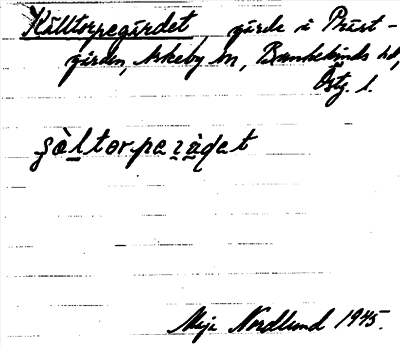 Källtorpegärdet, gärde i Präst-
gården, Askeby sn, Bankekinds hd,
Östg. l.
şàltorpeɀàdet
Maja Nordlund 1945.